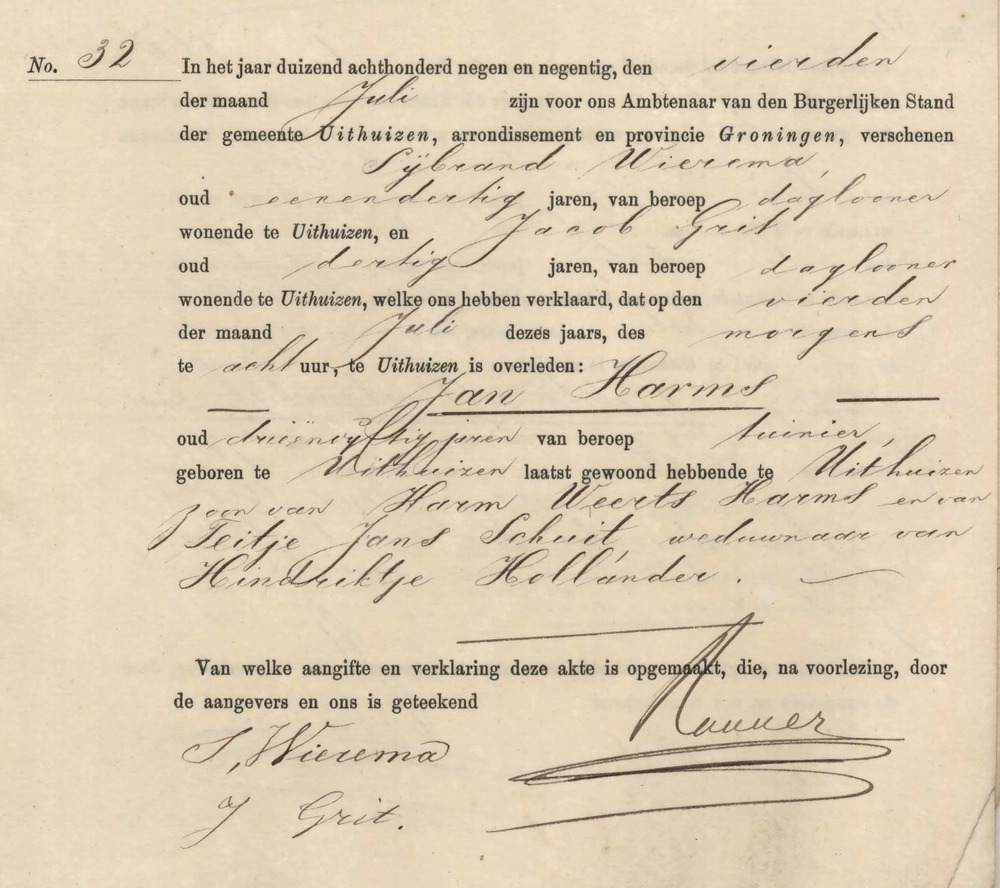 No. 32 In het jaar duizend achthonderd negen en negentig, den vierden
der maand Juli zijn voor ons Ambtenaar van den Burgerlijken Stand
der gemeente Uithuizen, arrondissement en provincie Groningen, verschenen
Sijbrand Wierema,
oud eenendertig jaren, van beroep daglooner
wonende te Uithuizen, en Jacob Grit
oud dertig jaren, van beroep daglooner
wonende te Uithuizen, welke ons hebben verklaard, dat op den vierden
der maand Juli dezes jaars, des morgens
te acht uur, te Uithuizen is overleden:
Jan Harms
oud drieënvijftig jaren van beroep tuinier,
geboren te Uithuizen laatst gewoond hebbende te Uithuizen
zoon van Harm Weerts Harms en van
Teitje Jans Schuit weduwnaar van
Hindriktje Hollander.
Van welke aangifte en verklaring deze akte is opgemaakt, die, na voorlezing, door
de aangevers en ons is geteekend
S, Wierema
J Grit.